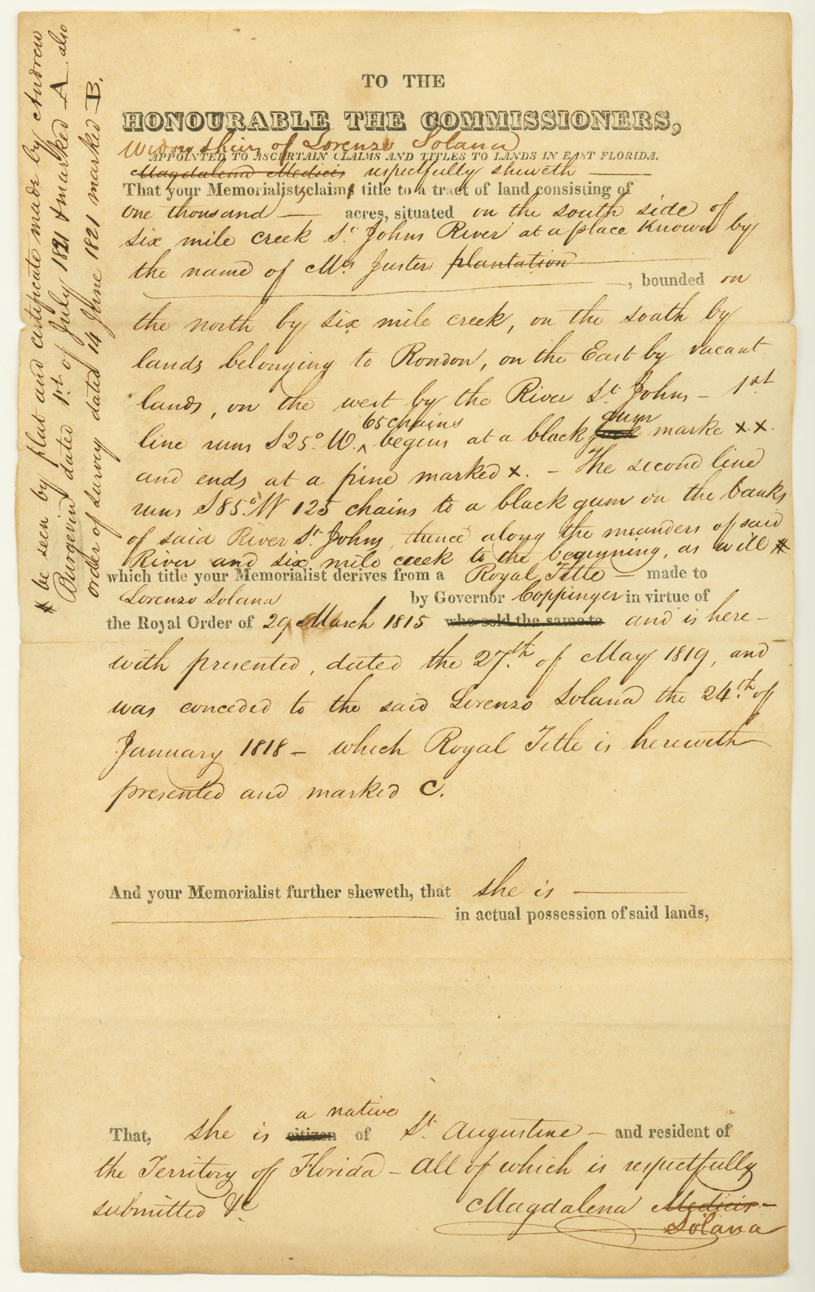 TO THE
HONOURABLE THE COMMISSIONERS,
Widow & heir of Lorenzo Solana
APPOINTED TO ASCERTAIN CLAIMS AND TITLES TO LANDS IN EAST FLORIDA.
Magdalena Medicis respectfully sheweth
That your Memorialist claims title to a tract of land consisting of
one thousand acres, situated on the south side of
six mile creek St Johns River at a place known by
the name of Mrs Justers plantation
, bounded on
the north by six mile creek, on the south by
lands belonging to Rondon, on the East by vacant
lands, on the west by the River St Johns - 1st
65 chains gum
line runs S25° W. begins at a black marke x x.
and ends at a pine marked x. - The second line
runs S85° W 125 chains to a black gum on the banks
of said River St Johns, thence along the meanders of said
River and six mile creek to the beginning, as will #
which title your Memorialist derives from a Royal Title - made to
Lorenzo Solana by Governor Coppinger in virtue of
the Royal Order of 29 March 1815 who sold the same to and is here-
with presented, dated the 27th of May 1819, and
was conceded to the said Lorenzo Solana the 24th of
January 1818 - which Royal Title is herewith
presented and marked C.
And your Memorialist further sheweth, that she is
in actual possession of said lands,
a native
That, she is citizen of St Augustine - and resident of
the Territory of Florida - All of which is respectfully
submitted &c
Magdalena Medicis
Solana
# be seen by plat and certificate made by Andrew
Burgevin dated 1st of July 1821 & marked A also
order of survey dated 14 June 1821 marked B.